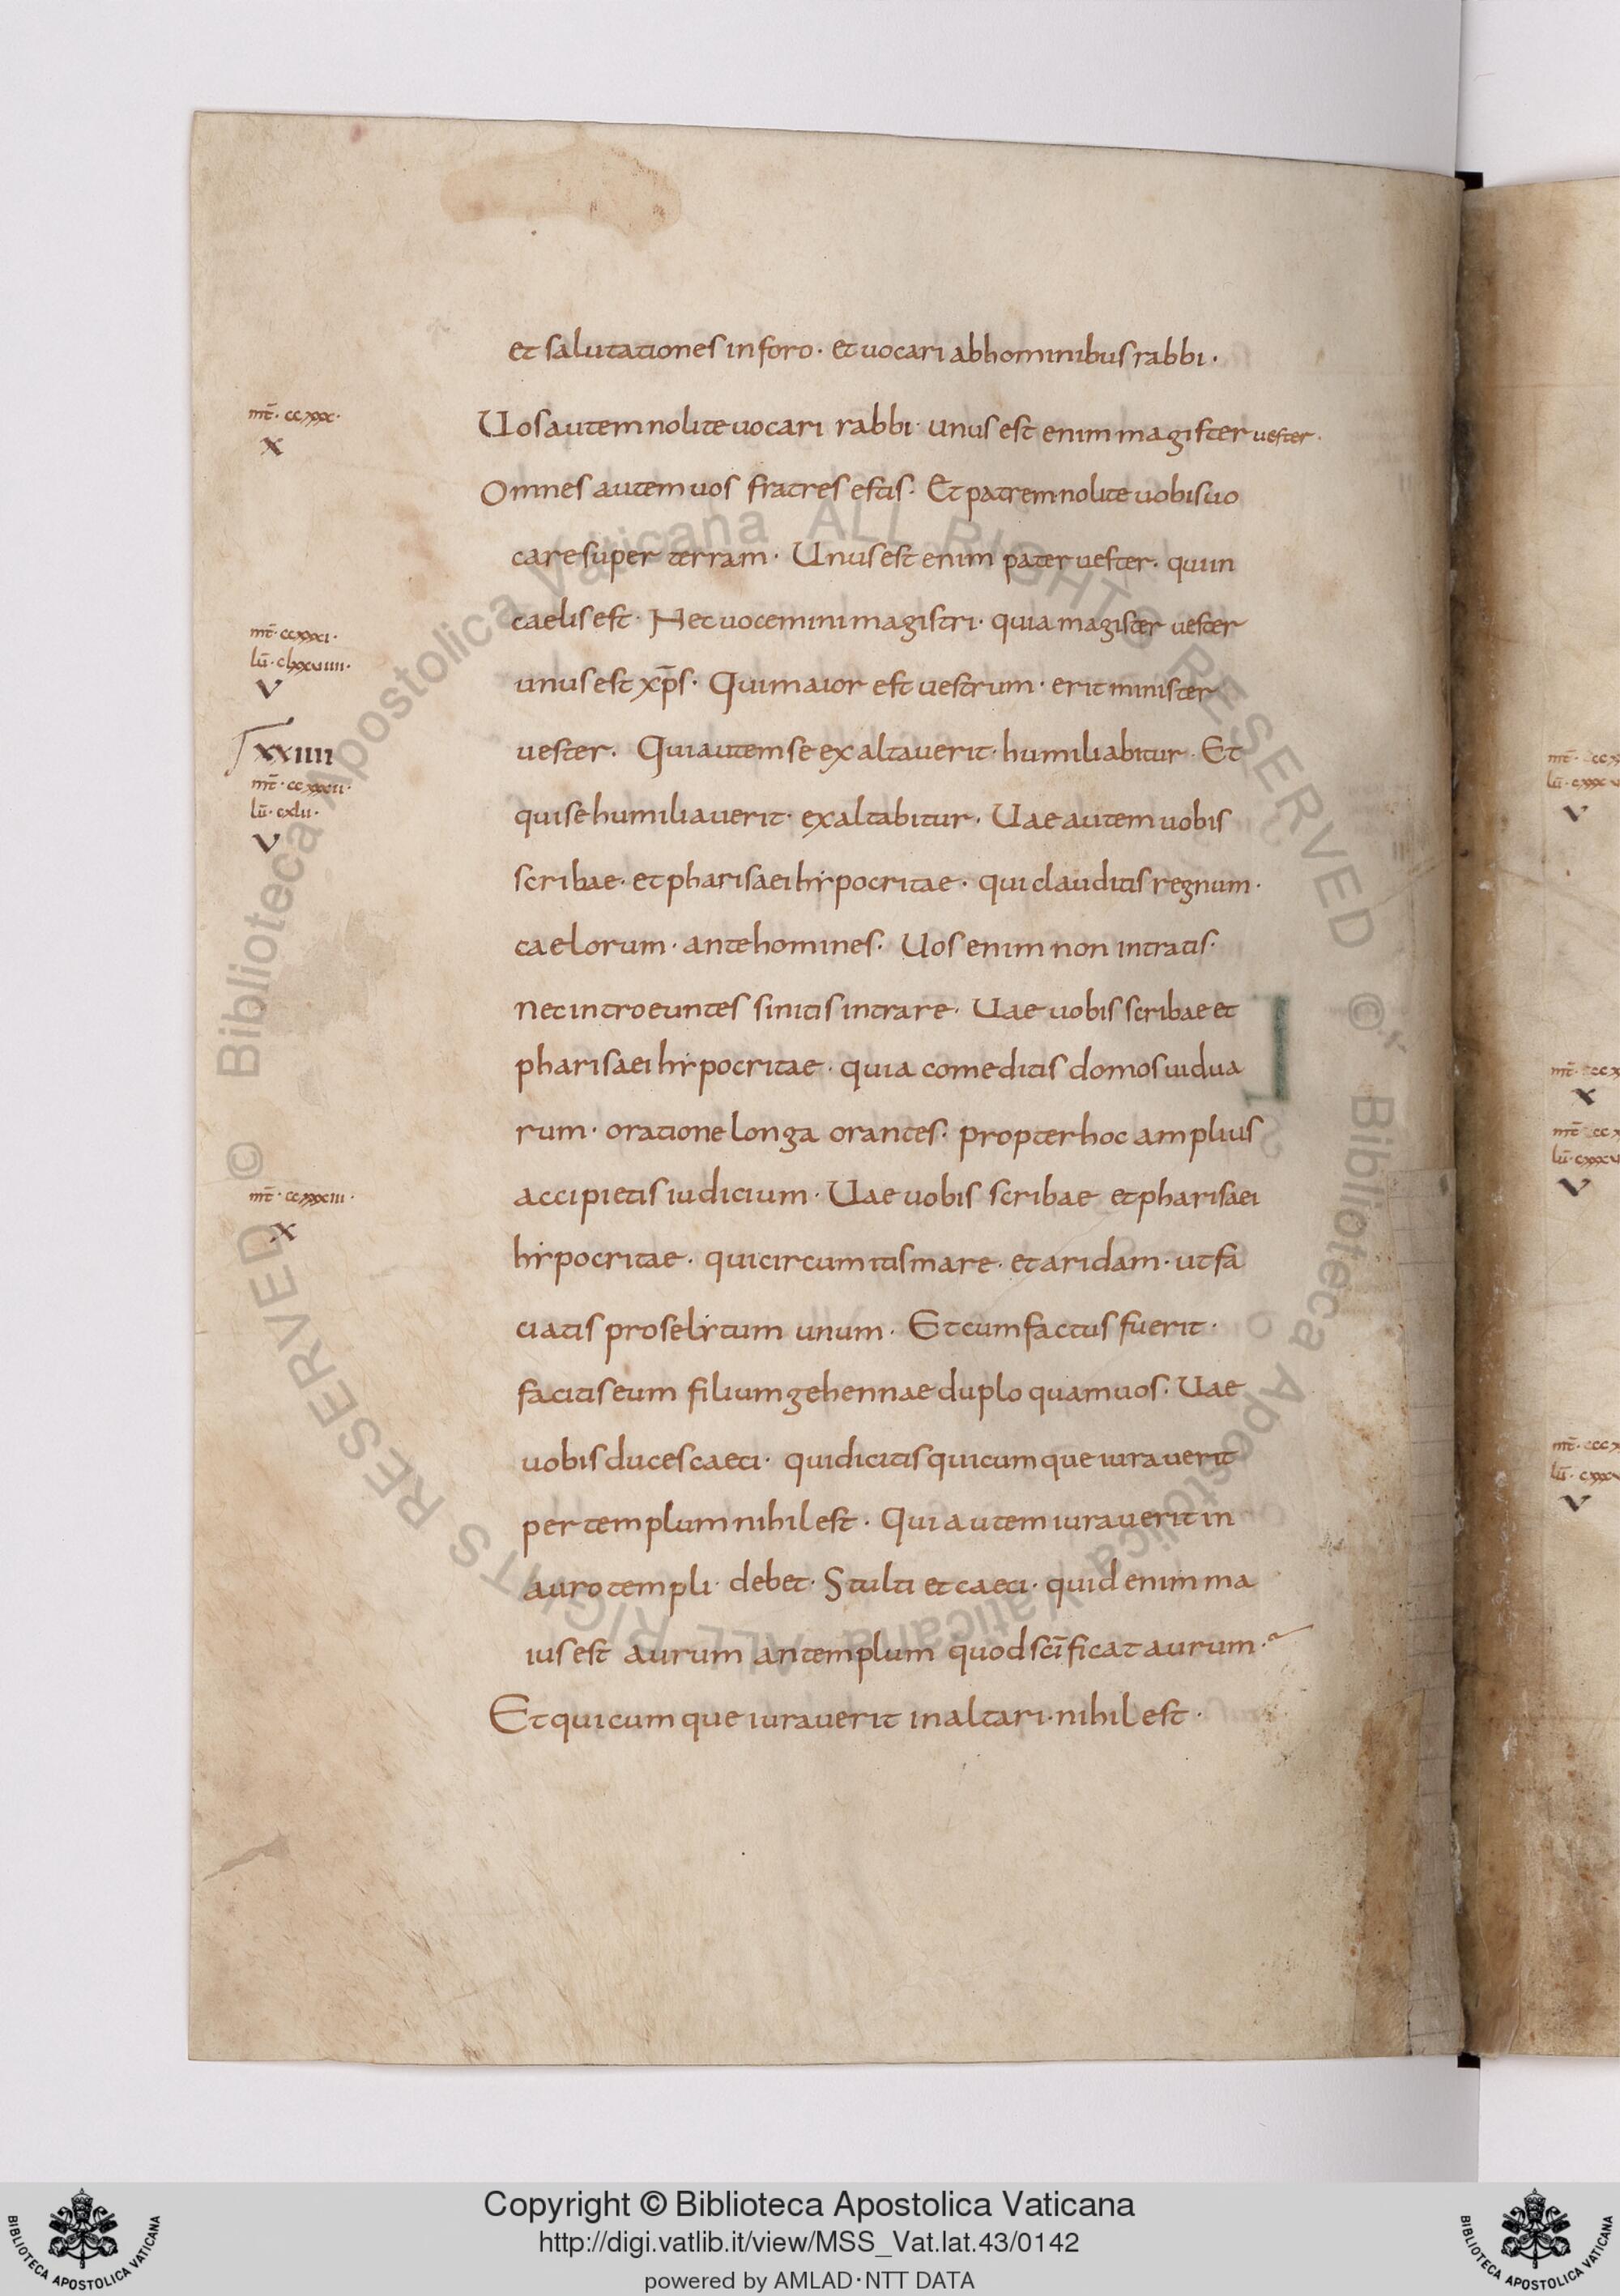 et salutationes in foro · et uocari ab hominibus rabbi ·
mt̄ · ccxxx ·
X
Uos autem nolite uocari rabbi · unus est enim magister uester ·
Omnes autem uos fratres estis · Et patrem nolite uobis uo
care super terram · Unus est enim pater uester · qui in
caelis est · Nec uocemini magistri · quia magister uester
mt̄ · ccxxxi ·
lū · clxxviiii ·
V
unus est xp̄s · Qui maior est uestrum · erit minister
uester · Qui autem se exaltauerit · humiliabitur · Et
XXIIII
mt̄ · ccxxxii ·
lū · cxlii ·
V
qui se humiliauerit · exaltabitur · Uae autem uobis
scribae · et pharisaei hẏpocritae · qui clauditis regnum ·
caelorum · ante homines · Uos enim non intratis ·
nec introeuntes sinitis intrare · Uae uobis scribae et
pharisaei hẏpocritae · quia comeditis domos uidua
rum · oratione longa orantes · propter hoc amplius
accipietis iudicium · Uae uobis scribae et pharisaei
mt̄ · ccxxxiii ·
X
hẏpocritae · qui circumitis mare · et aridam · ut fa
ciatis proselẏtum unum · Et cum factus fuerit ·
facitis eum filium gehennae duplo quam uos · Uae
uobis duces caeci · qui dicitis quicumque iurauerit
per templum nihil est · Qui autem iurauerit in
auro templi · debet · Stulti et caeci · quid enim ma
ius est aurum an templum quod sc̄ificat aurum ·
Et quicumque iurauerit in altari · nihil est ·
© Biblioteca Apostolica Vaticana ALL RIGHTS RESERVED
© Biblioteca Apostolica Vaticana ALL RIGHTS RESERVED
BIBLIOTECA APOSTOLICA VATICANA
Copyright © Biblioteca Apostolica Vaticana
http://digi.vatlib.it/view/MSS_Vat.lat.43/0142
powered by AMLAD·NTT DATA
BIBLIOTECA APOSTOLICA VATICANA